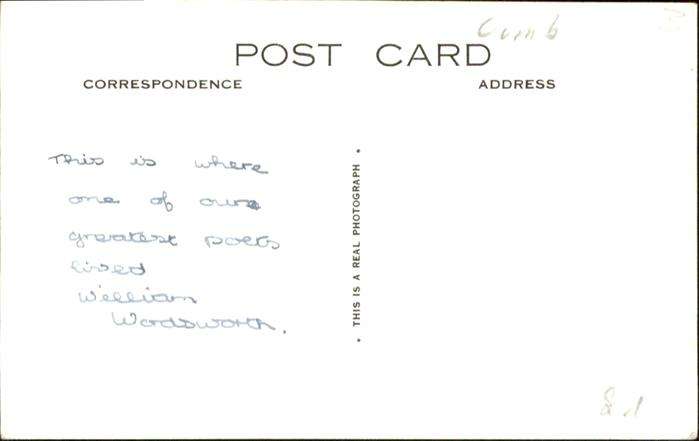 Cumb
POST CARD
CORRESPONDENCE
ADDRESS
This is where
one of our
greatest poets
lived
William
Wordsworth.
• THIS IS A REAL PHOTOGRAPH •